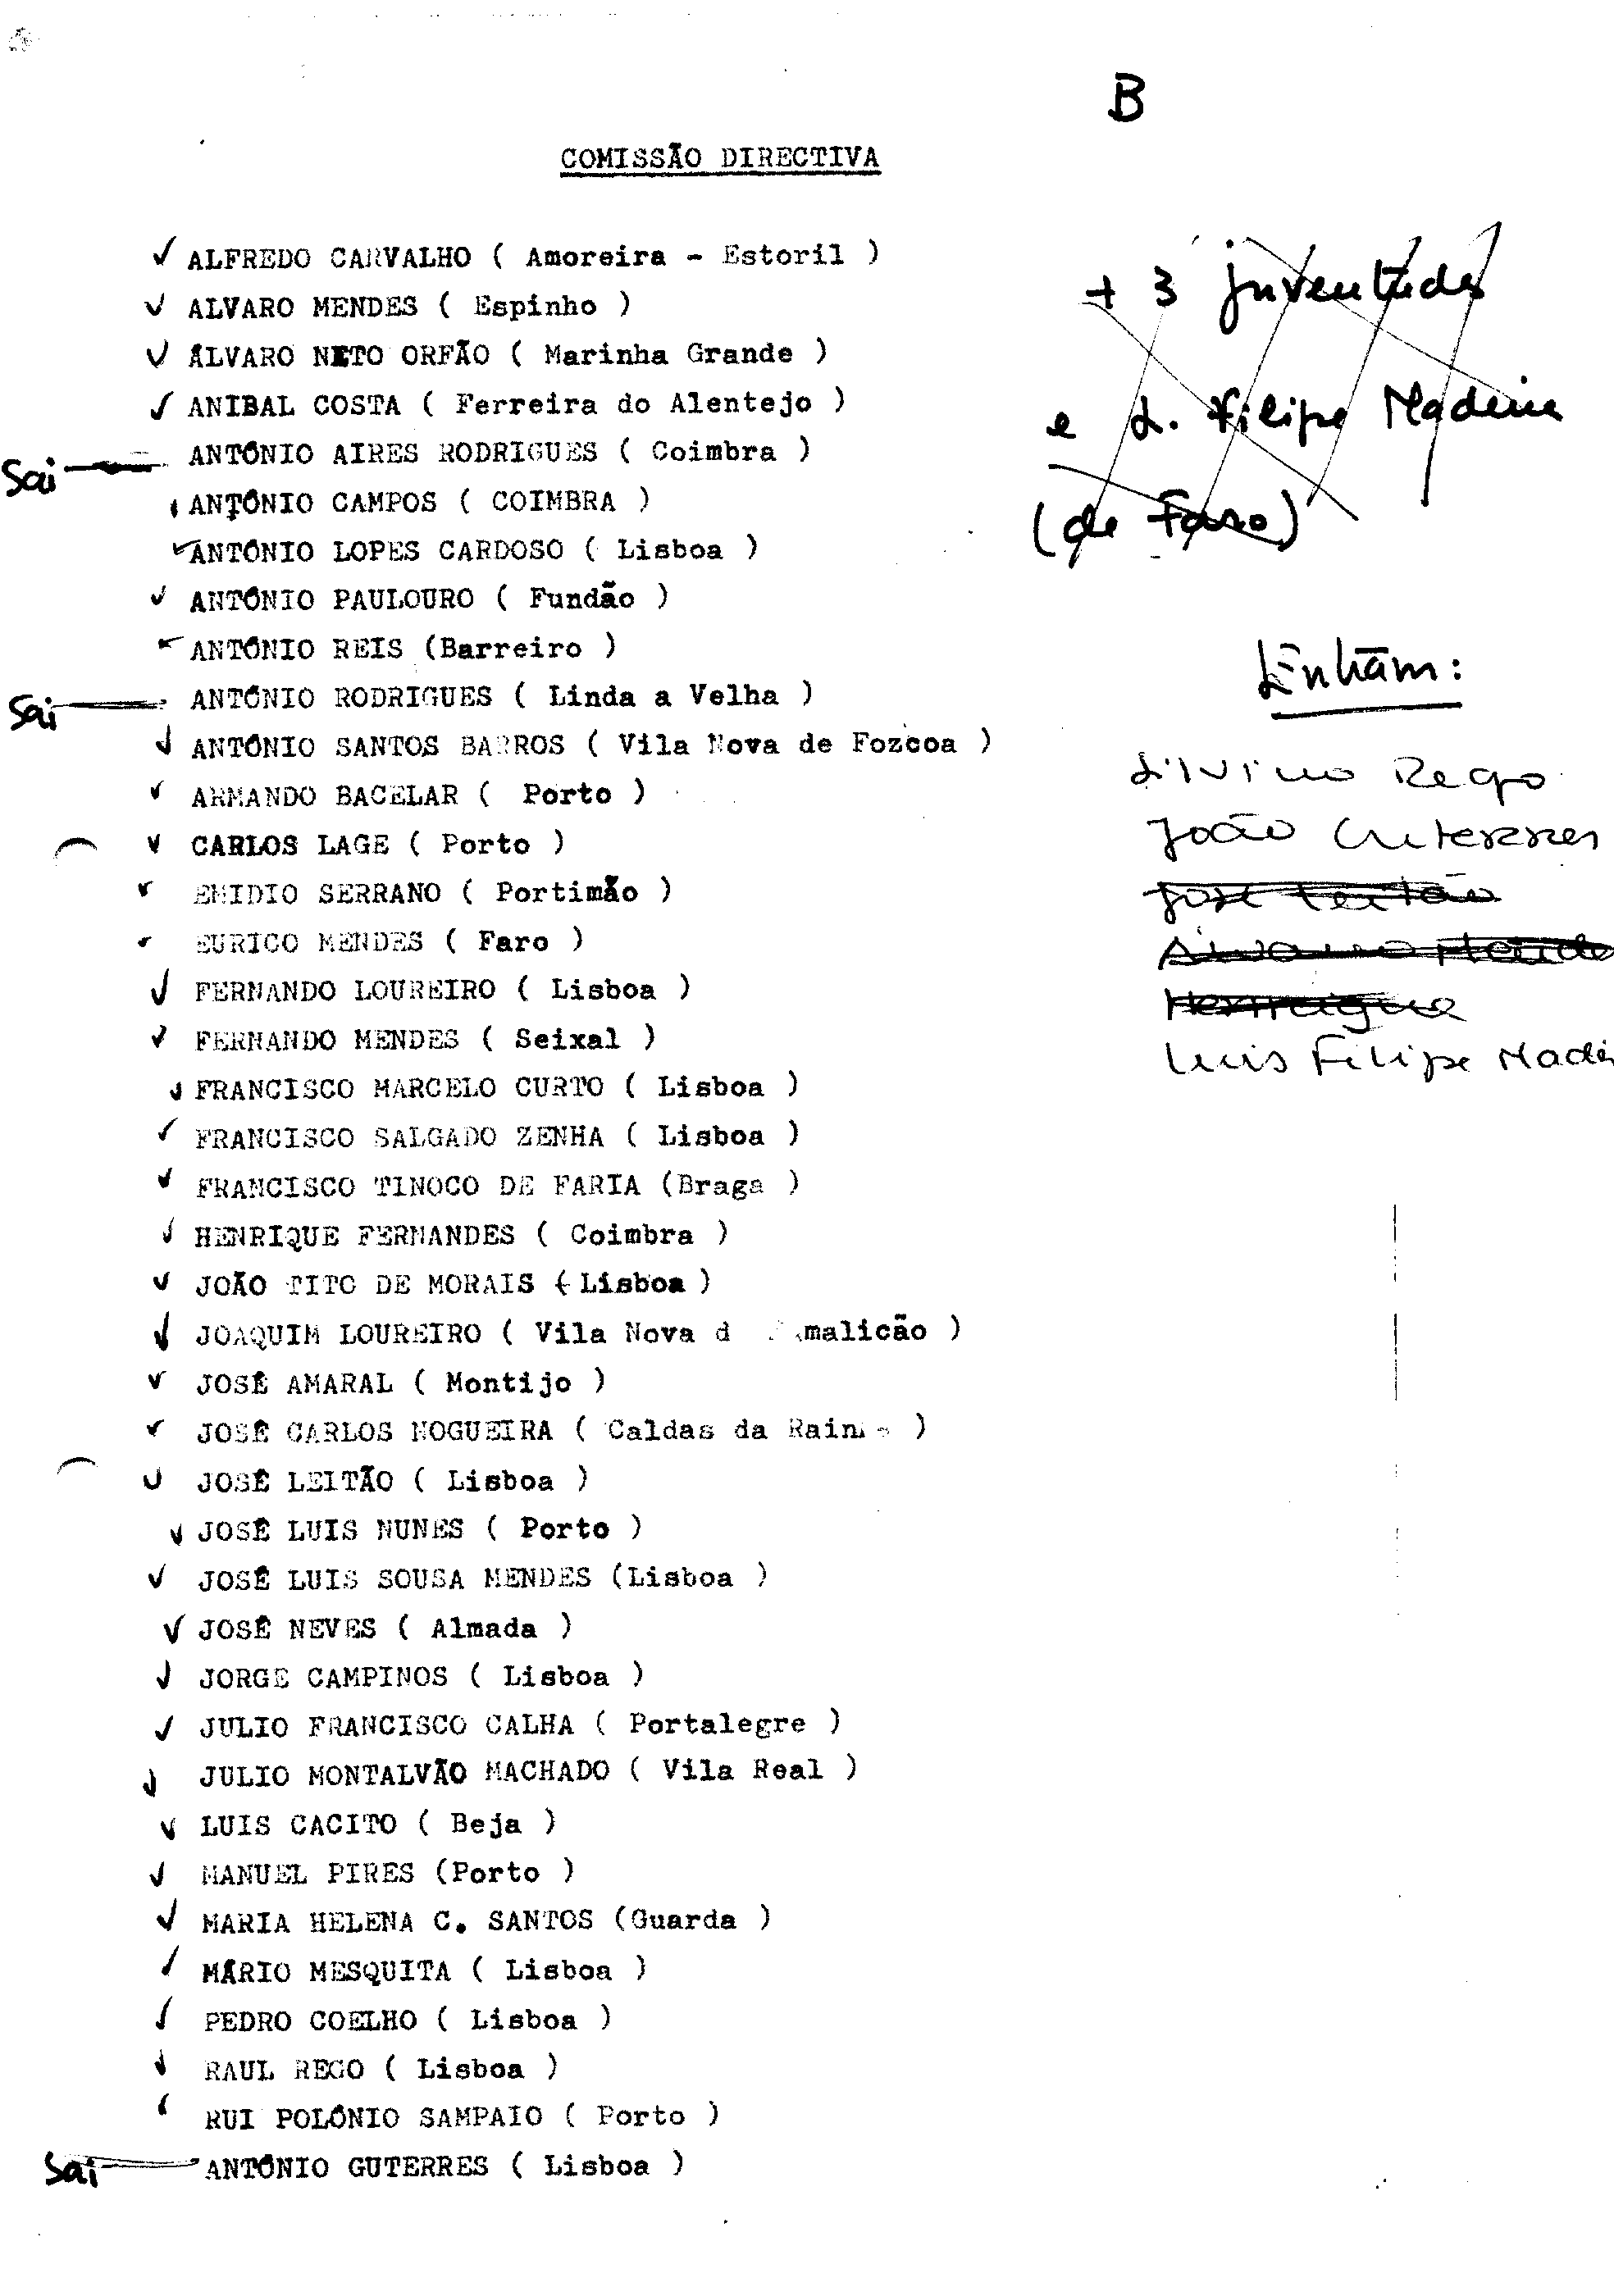 B
COMISSÃO DIRECTIVA
ALFREDO CARVALHO ( Amoreira - Estoril )
ALVARO MENDES ( Espinho )
ÁLVARO NETO ORFÃO ( Marinha Grande )
ANIBAL COSTA ( Ferreira do Alentejo )
Sai ANTÓNIO AIRES RODRIGUES ( Coimbra )
ANTÓNIO CAMPOS ( COIMBRA )
ANTÓNIO LOPES CARDOSO ( Lisboa )
ANTÓNIO PAULOURO ( Fundão )
ANTÓNIO REIS (Barreiro )
Sai ANTÓNIO RODRIGUES ( Linda a Velha )
ANTÓNIO SANTOS BARROS ( Vila Nova de Fozcoa )
ARMANDO BACELAR ( Porto )
CARLOS LAGE ( Porto )
EMIDIO SERRANO ( Portimão )
EURICO MENDES ( Faro )
FERNANDO LOUREIRO ( Lisboa )
FERNANDO MENDES ( Seixal )
FRANCISCO MARCELO CURTO ( Lisboa )
FRANCISCO SALGADO ZENHA ( Lisboa )
FRANCISCO TINOCO DE FARIA (Braga )
HENRIQUE FERNANDES ( Coimbra )
JOÃO TITO DE MORAIS ( Lisboa )
JOAQUIM LOUREIRO ( Vila Nova d malicão )
JOSÉ AMARAL ( Montijo )
JOSÉ CARLOS NOGUEIRA ( Caldas da Rain )
JOSÉ LEITÃO ( Lisboa )
JOSÉ LUIS NUNES ( Porto )
JOSÉ LUIS SOUSA MENDES (Lisboa )
JOSÉ NEVES ( Almada )
JORGE CAMPINOS ( Lisboa )
JULIO FRANCISCO CALHA ( Portalegre )
JULIO MONTALVÃO MACHADO ( Vila Real )
LUIS CACITO ( Beja )
MANUEL PIRES (Porto )
MARIA HELENA C. SANTOS (Guarda )
MÁRIO MESQUITA ( Lisboa )
PEDRO COELHO ( Lisboa )
RAUL REGO ( Lisboa )
RUI POLÓNIO SAMPAIO ( Porto )
Sai ANTÓNIO GUTERRES ( Lisboa )
+ 3 juventudes
e L. Filipe Madeira
(de Faro)
Entrãm:
Silvino Rego
João Guterres
José Leitão
Alvaro Mende
Luis Filipe Madei